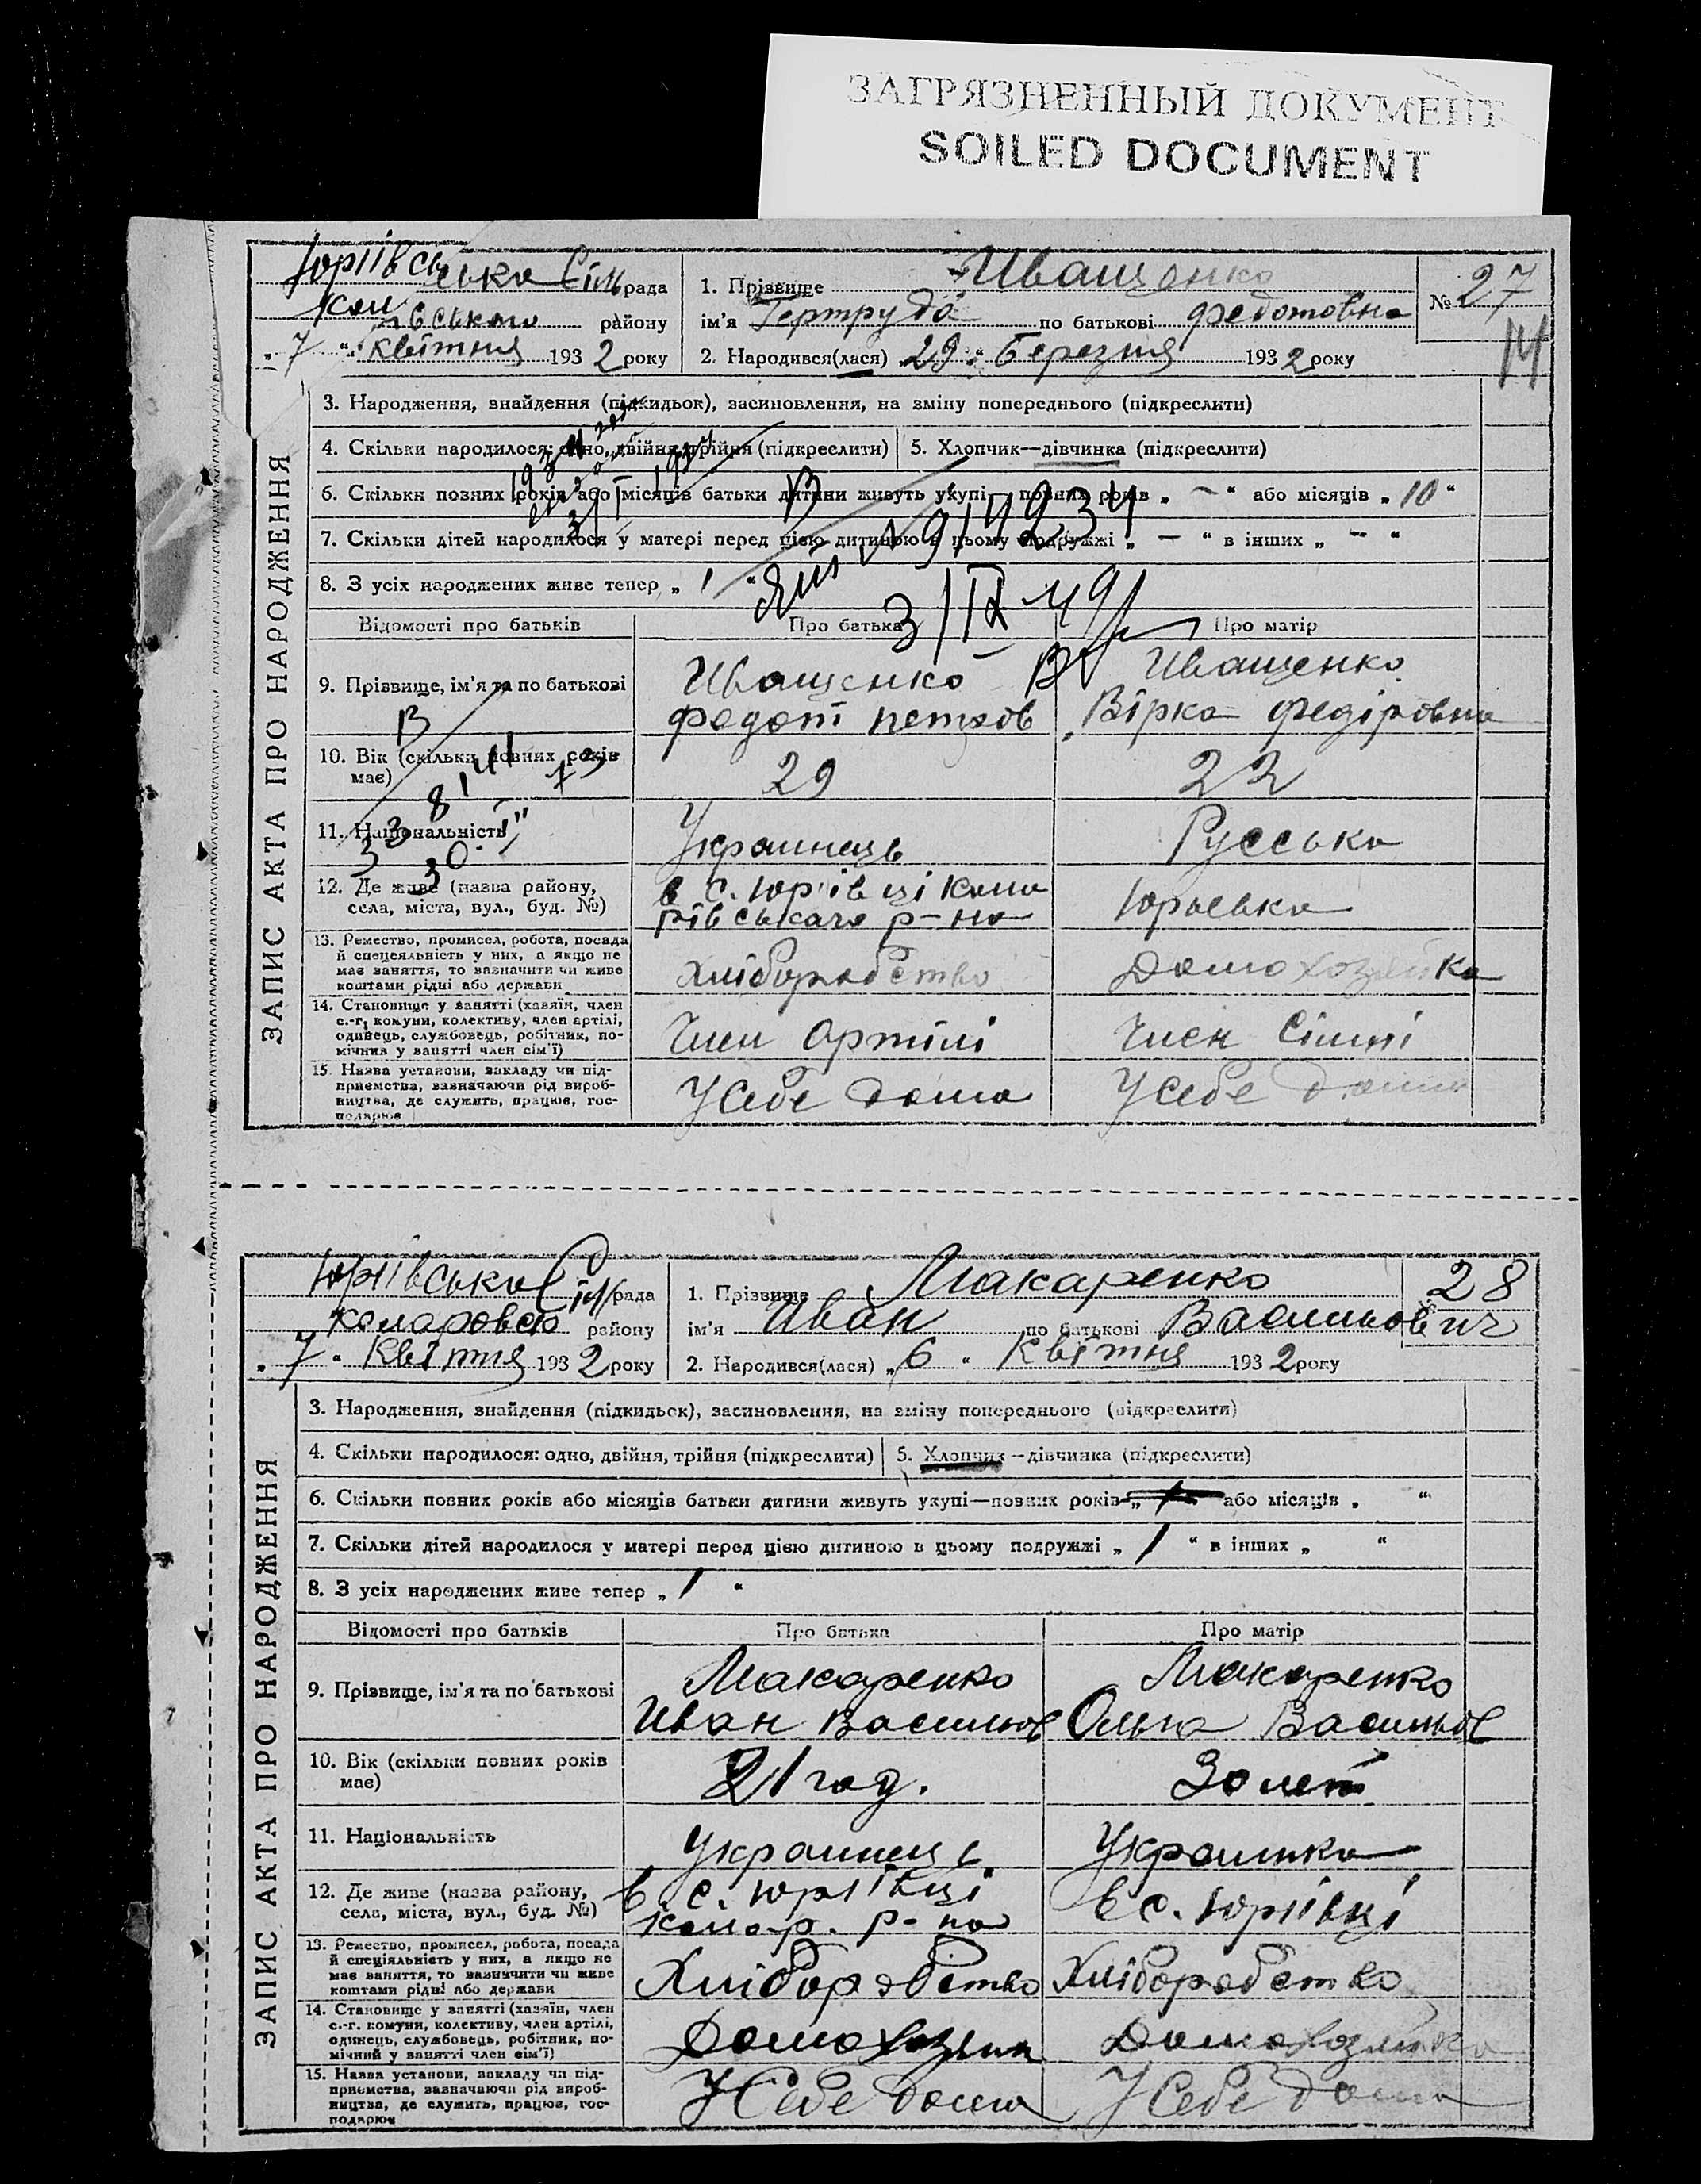 ЗАГРЯЗНЕННЫЙ ДОКУМЕНТ
SOILED DOCUMENT
ЗАПИС АКТА ПРО НАРОДЖЕННЯ
Юріївсь ська Сіль рада
району
„ 7 “ квітня 1932 року
1. Прізвище Иващенко
ім'я Гертруда по батькові Федотовна
2. Народився(лася) 29 “ Березня 1932 року
№ 27
14
3. Народження, знайдення (підкидьок), засиновлення, на зміну попереднього (підкреслити)
4. Скільки народилося: одно, двійня, трійня (підкреслити) 5. Хлопчик—дівчинка (підкреслити)
6. Скільки повних років або місяців батьки дитини живуть укупі— повних років „ — “ або місяців „ 10 “
7. Скільки дітей народилося у матері перед цією дитиною в цьому подружжі „ — “ в інших „ — “
8. З усіх народжених живе тепер „ 1 “
3/IX 49
Відомості про батьків Про батька Про матір
9. Прізвище, ім'я та по батькові
Иващенко Федот петров
Иващенко Вірка Федіровна
10. Вік (скільки повних років має) 29 22
11. Національність Украинець Русська
12. Де живе (назва району, села, міста, вул., буд. №)
в с. Юріівці Кома
рівського р-на
Юрьевка
13. Ремество, промисел, робота, посада
й спеціяльність у них, а якщо не
має заняття, то зазначити чи живе
коштами рідні або держави
Хліборобство Домохозяйка
14. Становище у занятті (хазяїн, член
с.-г. комуни, колективу, член артілі,
одинець, службовець, робітник, по-
мічник у занятті член сім'ї)
Член Артілі Член Сімні
15. Назва установи, закладу чи під-
приємства, зазначаючи рід вироб-
ництва, де служить, працює, гос-
подарює
У себе дома У себе дома
ЗАПИС АКТА ПРО НАРОДЖЕННЯ
Юріївська Сіл рада
Комаровсько району
„ 7 “ Квітня 1932 року
1. Прізвище Макаренко
ім'я Иван по батькові Васильович
2. Народився(лася) „ 6 “ Квітня 1932 року
28
3. Народження, знайдення (підкидьок), засиновлення, на зміну попереднього (підкреслити)
4. Скільки народилося: одно, двійня, трійня (підкреслити) 5. Хлопчик—дівчинка (підкреслити)
6. Скільки повних років або місяців батьки дитини живуть укупі—повних років „ “ або місяців „ “
7. Скільки дітей народилося у матері перед цією дитиною в цьому подружжі „ 1 “ в інших „ “
8. З усіх народжених живе тепер „ 1 “
Відомості про батьків Про батька Про матір
9. Прізвище, ім'я та по батькові
Макаренко Иван Васильов
Макаренко Ольга Васильов
10. Вік (скільки повних років має) 21 год. 30 лет
11. Національність Украинець Украинка
12. Де живе (назва району, села, міста, вул., буд. №)
в с. Юріївці
Комар. р-на
в с. Юріївці
13. Ремество, промисел, робота, посада
й спеціяльність у них, а якщо не
має заняття, то зазначити чи живе
коштами рідні або держави
Хліборобство Хліборобство
14. Становище у занятті (хазяїн, член
с.-г. комуни, колективу, член артілі,
одинець, службовець, робітник, по-
мічний у занятті член сім'ї)
Домохозяин Домохозяйка
15. Назва установи, закладу чи під-
приємства, зазначаючи рід вироб-
ництва, де служить, працює, гос-
подарює
У Себе дома У Себе дома